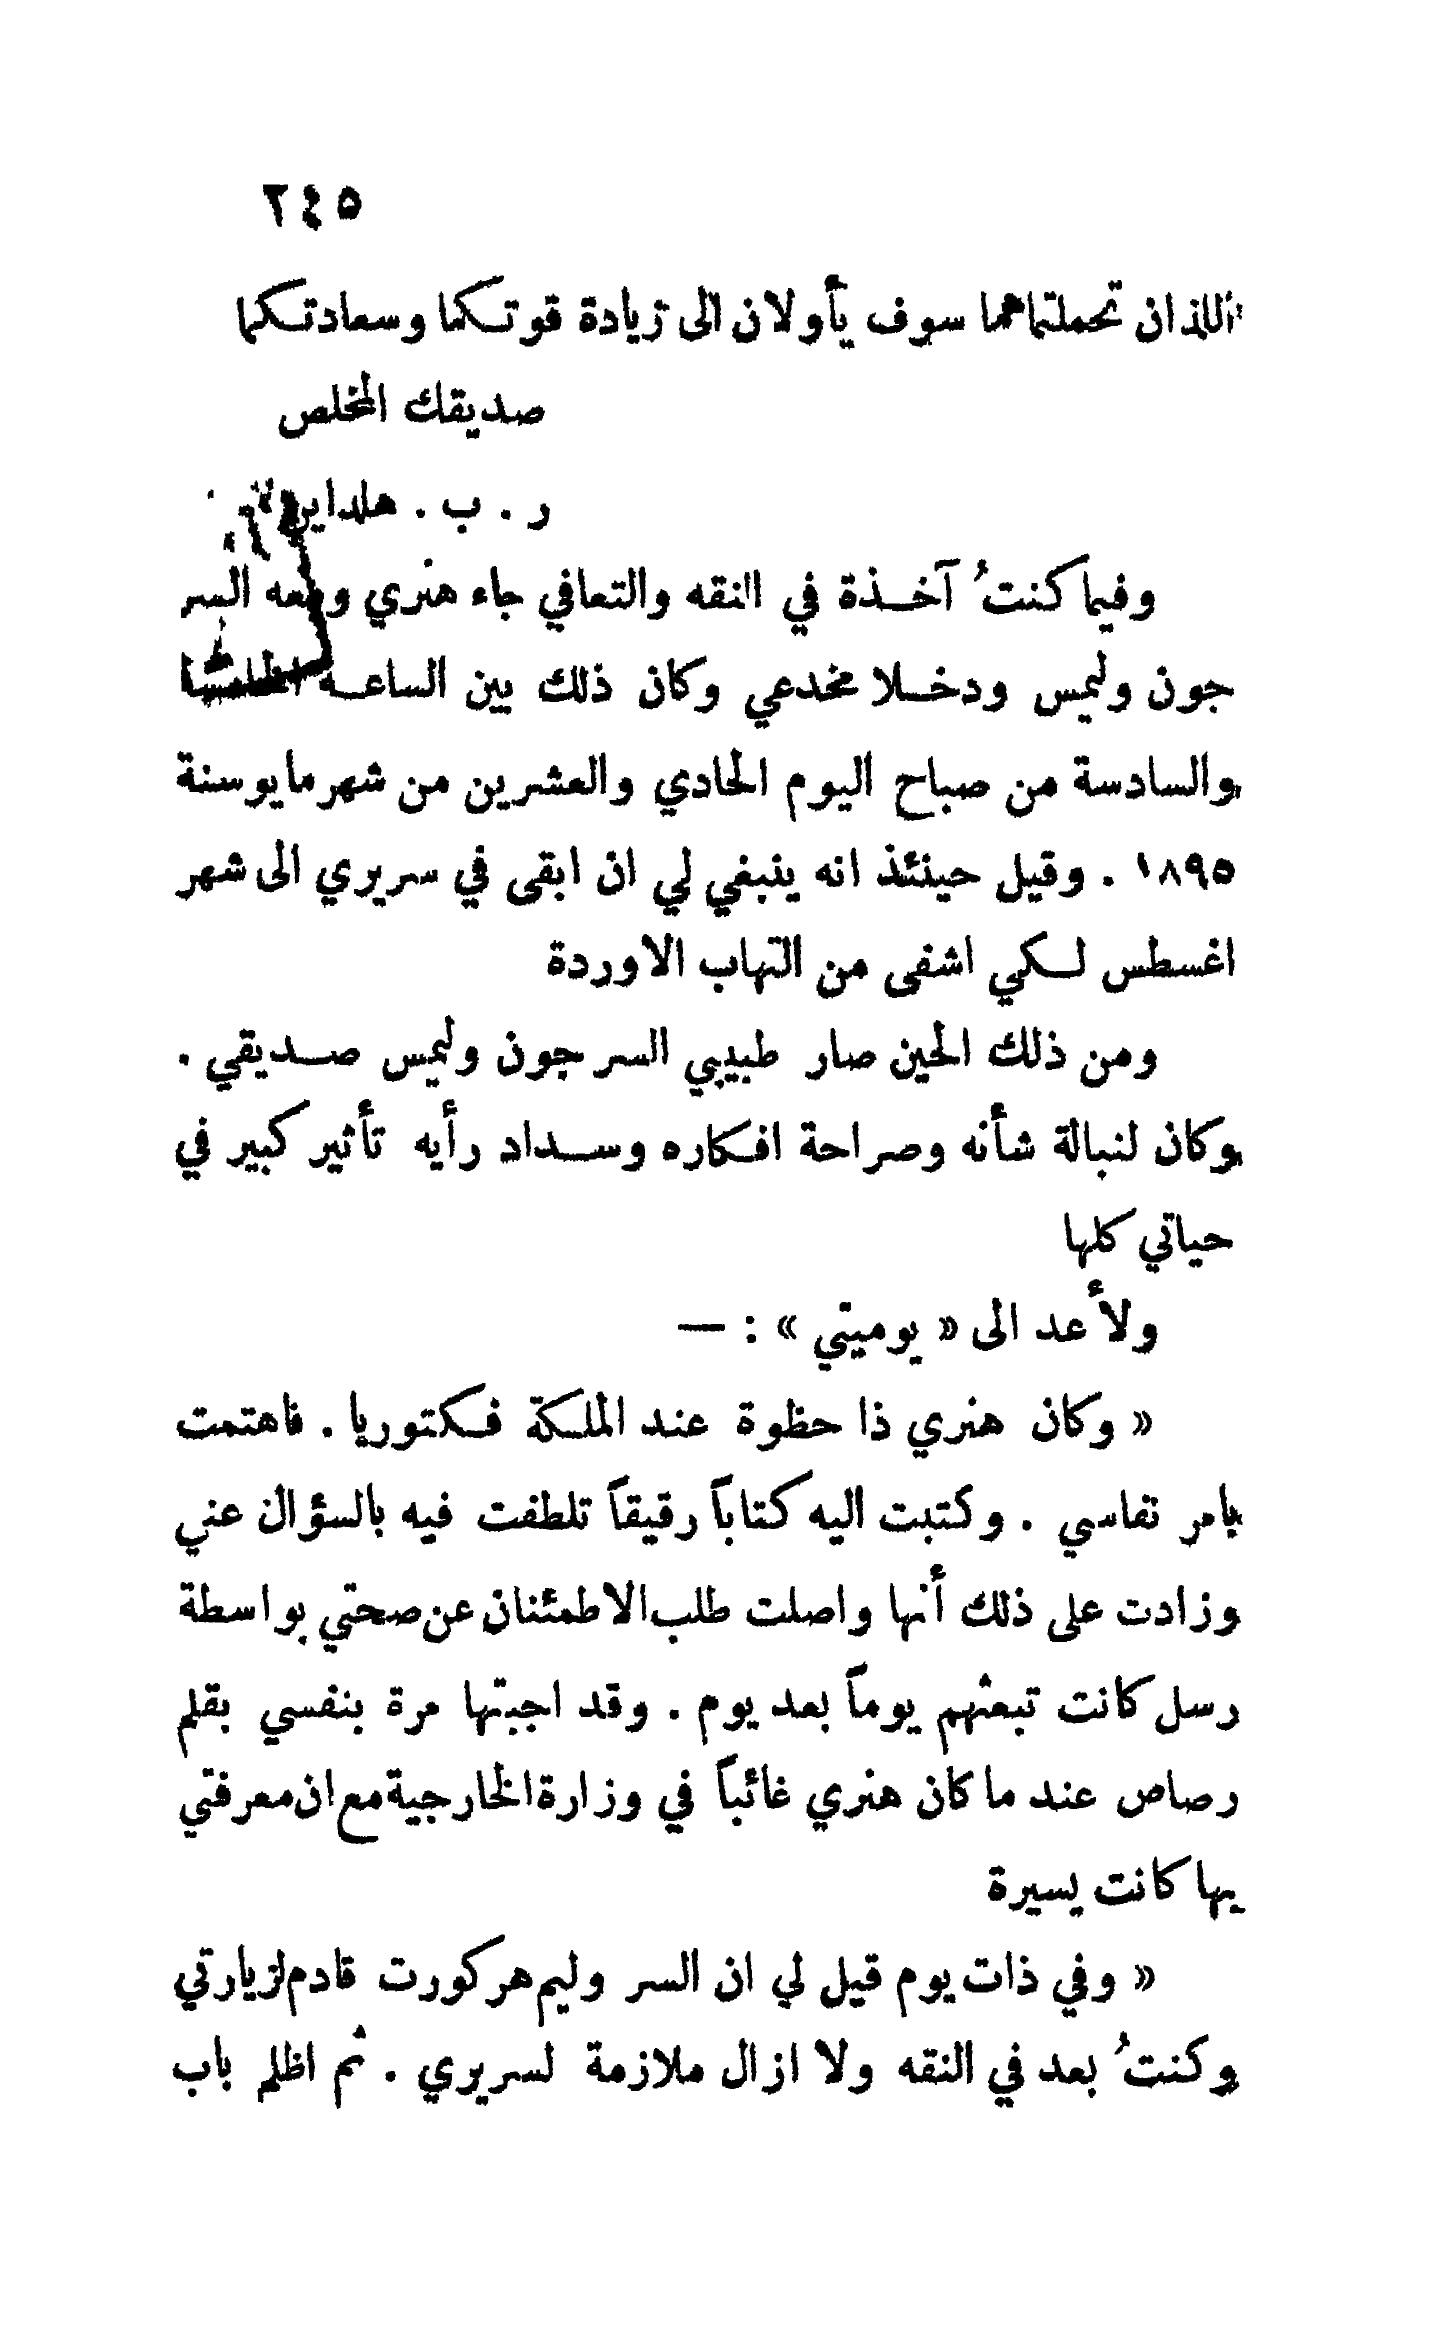 ٢٤٥
اللذان تحملتماهما سوف يأولان الى زيادة قوتكما وسعادتكما
صديقك المخلص
ر . ب . هلداين»
وفيما كنتُ آخذة في النقه والتعافي جاء هنري ومعه السر
جون وليمس ودخلا مخدعي وكان ذلك بين الساعة
والسادسة من صباح اليوم الحادي والعشرين من شهر مايو سنة
١٨٩٥ . وقيل حينئذ انه ينبغي لي ان ابقى في سريري الى شهر
اغسطس لكي اشفى من التهاب الاوردة
ومن ذلك الحين صار طبيبي السر جون وليمس صديقي .
وكان لنبالة شأنه وصراحة افكاره وسداد رأيه تأثير كبير في
حياتي كلها
ولأعد الى « يوميتي » : —
« وكان هنري ذا حظوة عند الملكة فكتوريا . فاهتمت
بامر نفاسي . وكتبت اليه كتاباً رقيقاً تلطفت فيه بالسؤال عني
وزادت على ذلك أنها واصلت طلب الاطمئنان عن صحتي بواسطة
رسل كانت تبعثهم يوماً بعد يوم . وقد اجبتها مرة بنفسي بقلم
رصاص عند ما كان هنري غائباً في وزارة الخارجية مع ان معرفتي
بها كانت يسيرة
« وفي ذات يوم قيل لي ان السر وليم هركورت قادم لزيارتي
وكنتُ بعد في النقه ولا ازال ملازمة لسريري . ثم اظلم باب